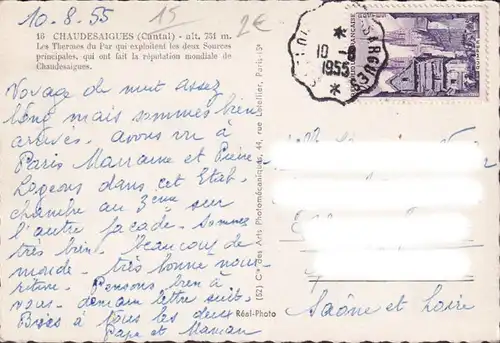 10-8-55
15
2€
16 CHAUDESAIGUES (Cantal) - alt. 751 m.
Les Thermes du Par qui exploitent les deux Sources
principales, qui ont fait la réputation mondiale de
Chaudesaigues.
Voyage de nuit assez
long mais sommes bien
arrivés. avons vu à
Paris Marraine et Pierre
Logeons dans cet Etab.
chambre au 3ème sur
l'autre façade. Sommes
très bien. beaucoup de
monde. très bonne nour-
riture. Pensons bien à
vous. demain lettre suit.
Bises à tous les deux
Papa et Maman
(52) Cie des Arts Photomécaniques, 44, rue Letellier, Paris-15e
Réal-Photo
10
1955
FRANÇAISE
Saône et Loire